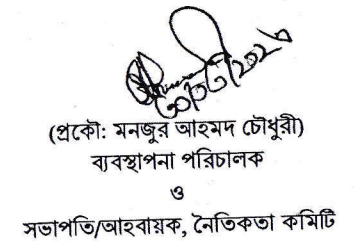 (প্রকৌ: মনজুর আহমদ চৌধুরী)
ব্যবস্থাপনা পরিচালক
ও
সভাপতি/আহবায়ক, নৈতিকতা কমিটি